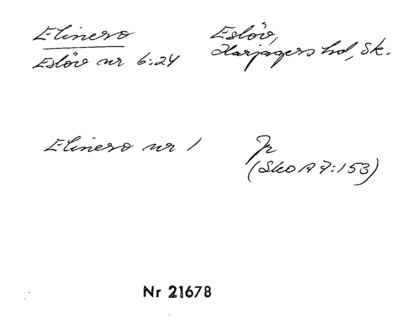 Elinero
Eslöv,
Eslöv nr 6:24
Harjagers hd, Sk.
Elinero nr 1
Jr
(SkO A 7:153)
Nr 21678